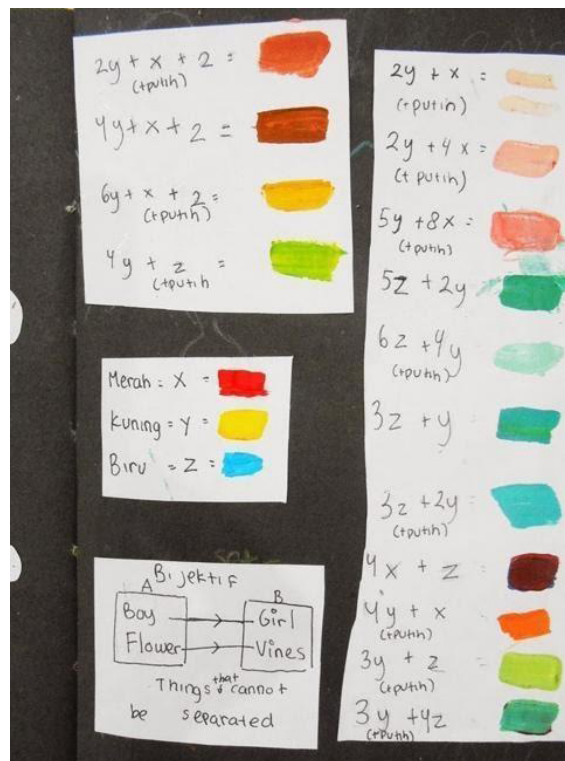 2y + x + 2 =
(+putih)
4y + x + 2 =
6y + x + 2 =
(+putih)
4y + z =
(+putih
Merah = X =
Kuning = Y =
Biru = Z =
Bijektif
A B
Boy Girl
Flower Vines
Things that cannot
be separated
2y + x =
(+putih)
2y + 4x =
(+ putih)
5y + 8x =
(+putih)
5z + 2y
6z + 4y
(+putih)
3z + y =
3z + 2y =
(+putih)
4x + z =
4y + x
(+putih)
3y + z
(+putih)
3y + 4z
(+putih)